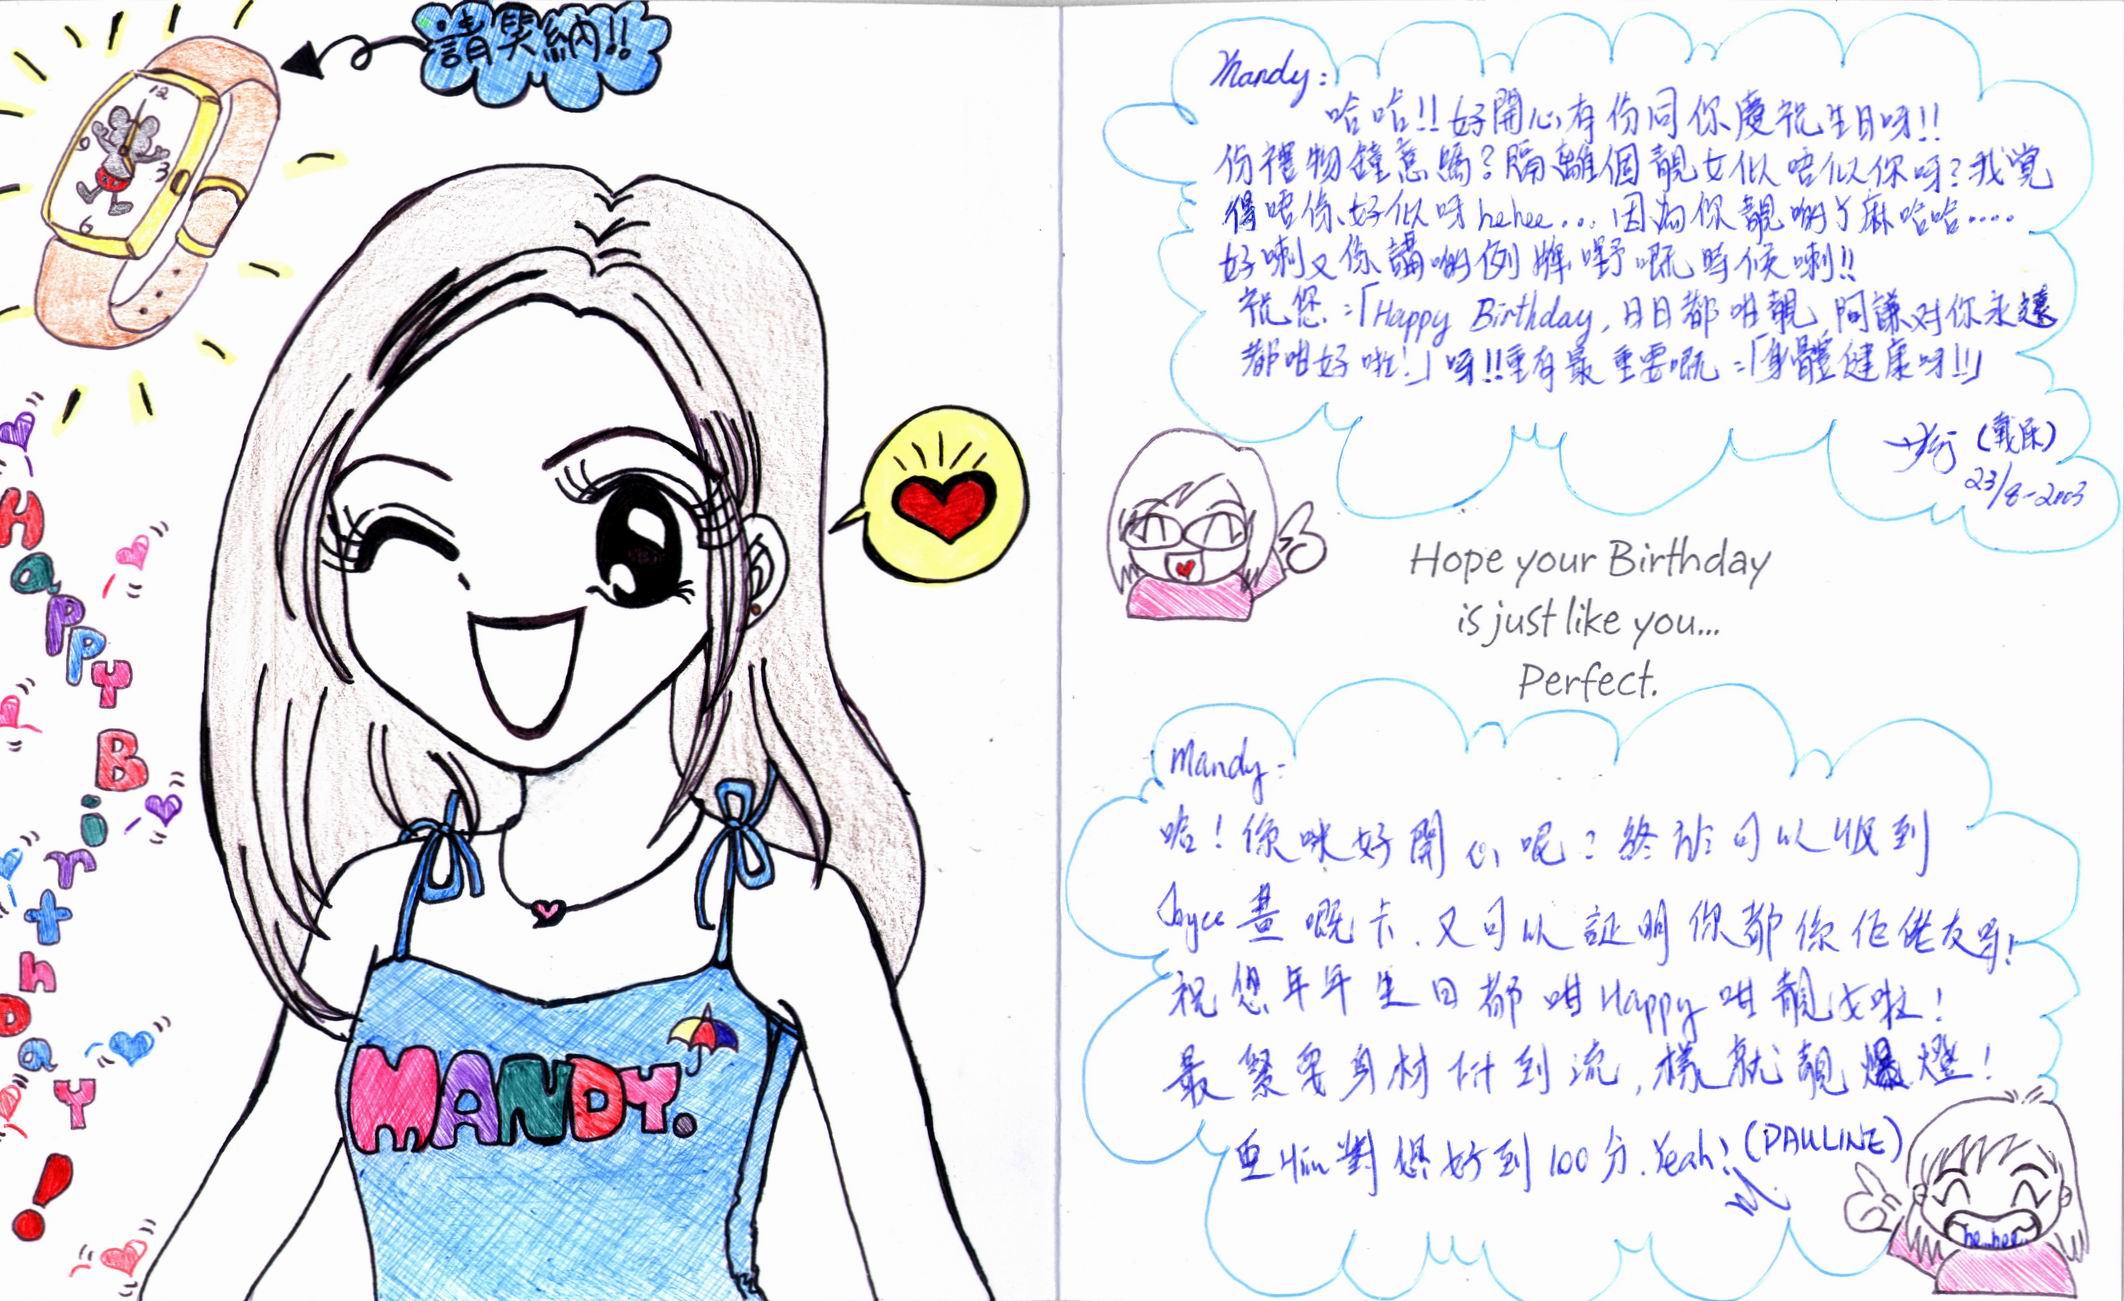 請笑納!!
12
3
6
9
Happy Birthday!
MANDY.
Mandy:
哈哈!!好開心有份同你慶祝生日呀!!
份禮物鐘意嗎?隔離個靚女似唔似你呀?我覺
得唔係好似呀hehee...因為你靚啲丫麻哈哈....
好喇又係講啲例牌嘢嘅時候喇!!
祝您:「Happy Birthday,日日都咁靚,阿謙对你永遠
都咁好啦!」呀!!重有最重要嘅:「身體健康呀!!」
23/8-2003
Hope your Birthday
is just like you...
Perfect.
Mandy:
哈!你咪好開心呢?終於可以收到
Joyce畫嘅卡.又可以証明你都係佢佬友罗!
祝您年年生日都咁Happy咁靚女啦!
最緊要身材忓到流,樣就靚爆燈!
對您好到100分.Yeah!(PAULINE)
he..hee..